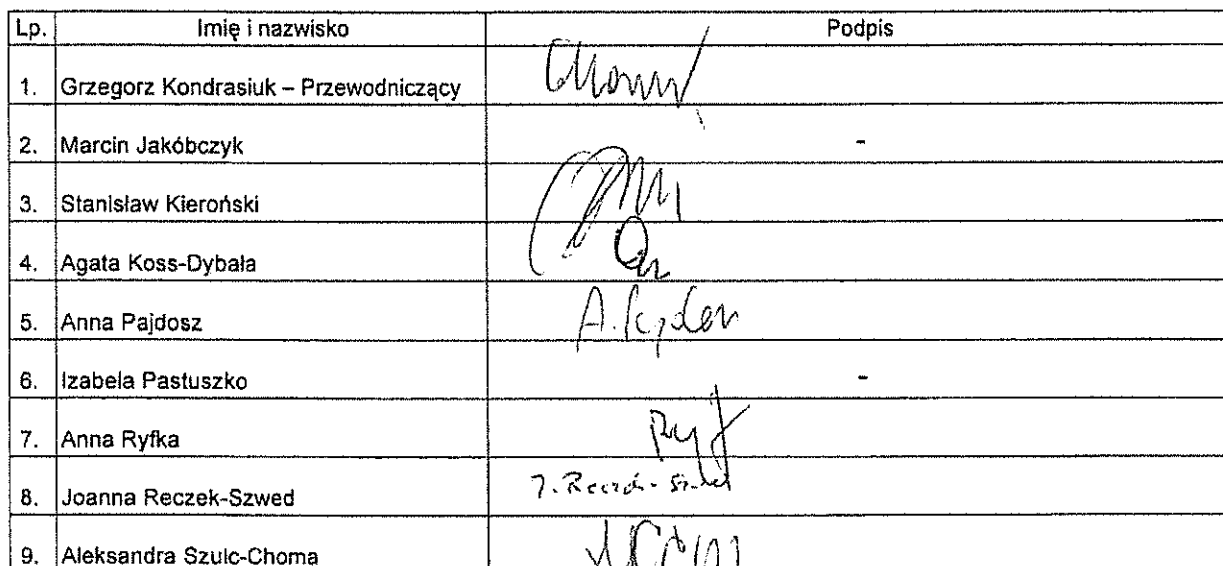 Lp. Imię i nazwisko Podpis
1. Grzegorz Kondrasiuk – Przewodniczący
2. Marcin Jakóbczyk -
3. Stanisław Kieroński
4. Agata Koss-Dybała
5. Anna Pajdosz A.
6. Izabela Pastuszko -
7. Anna Ryfka
8. Joanna Reczek-Szwed
9. Aleksandra Szulc-Choma